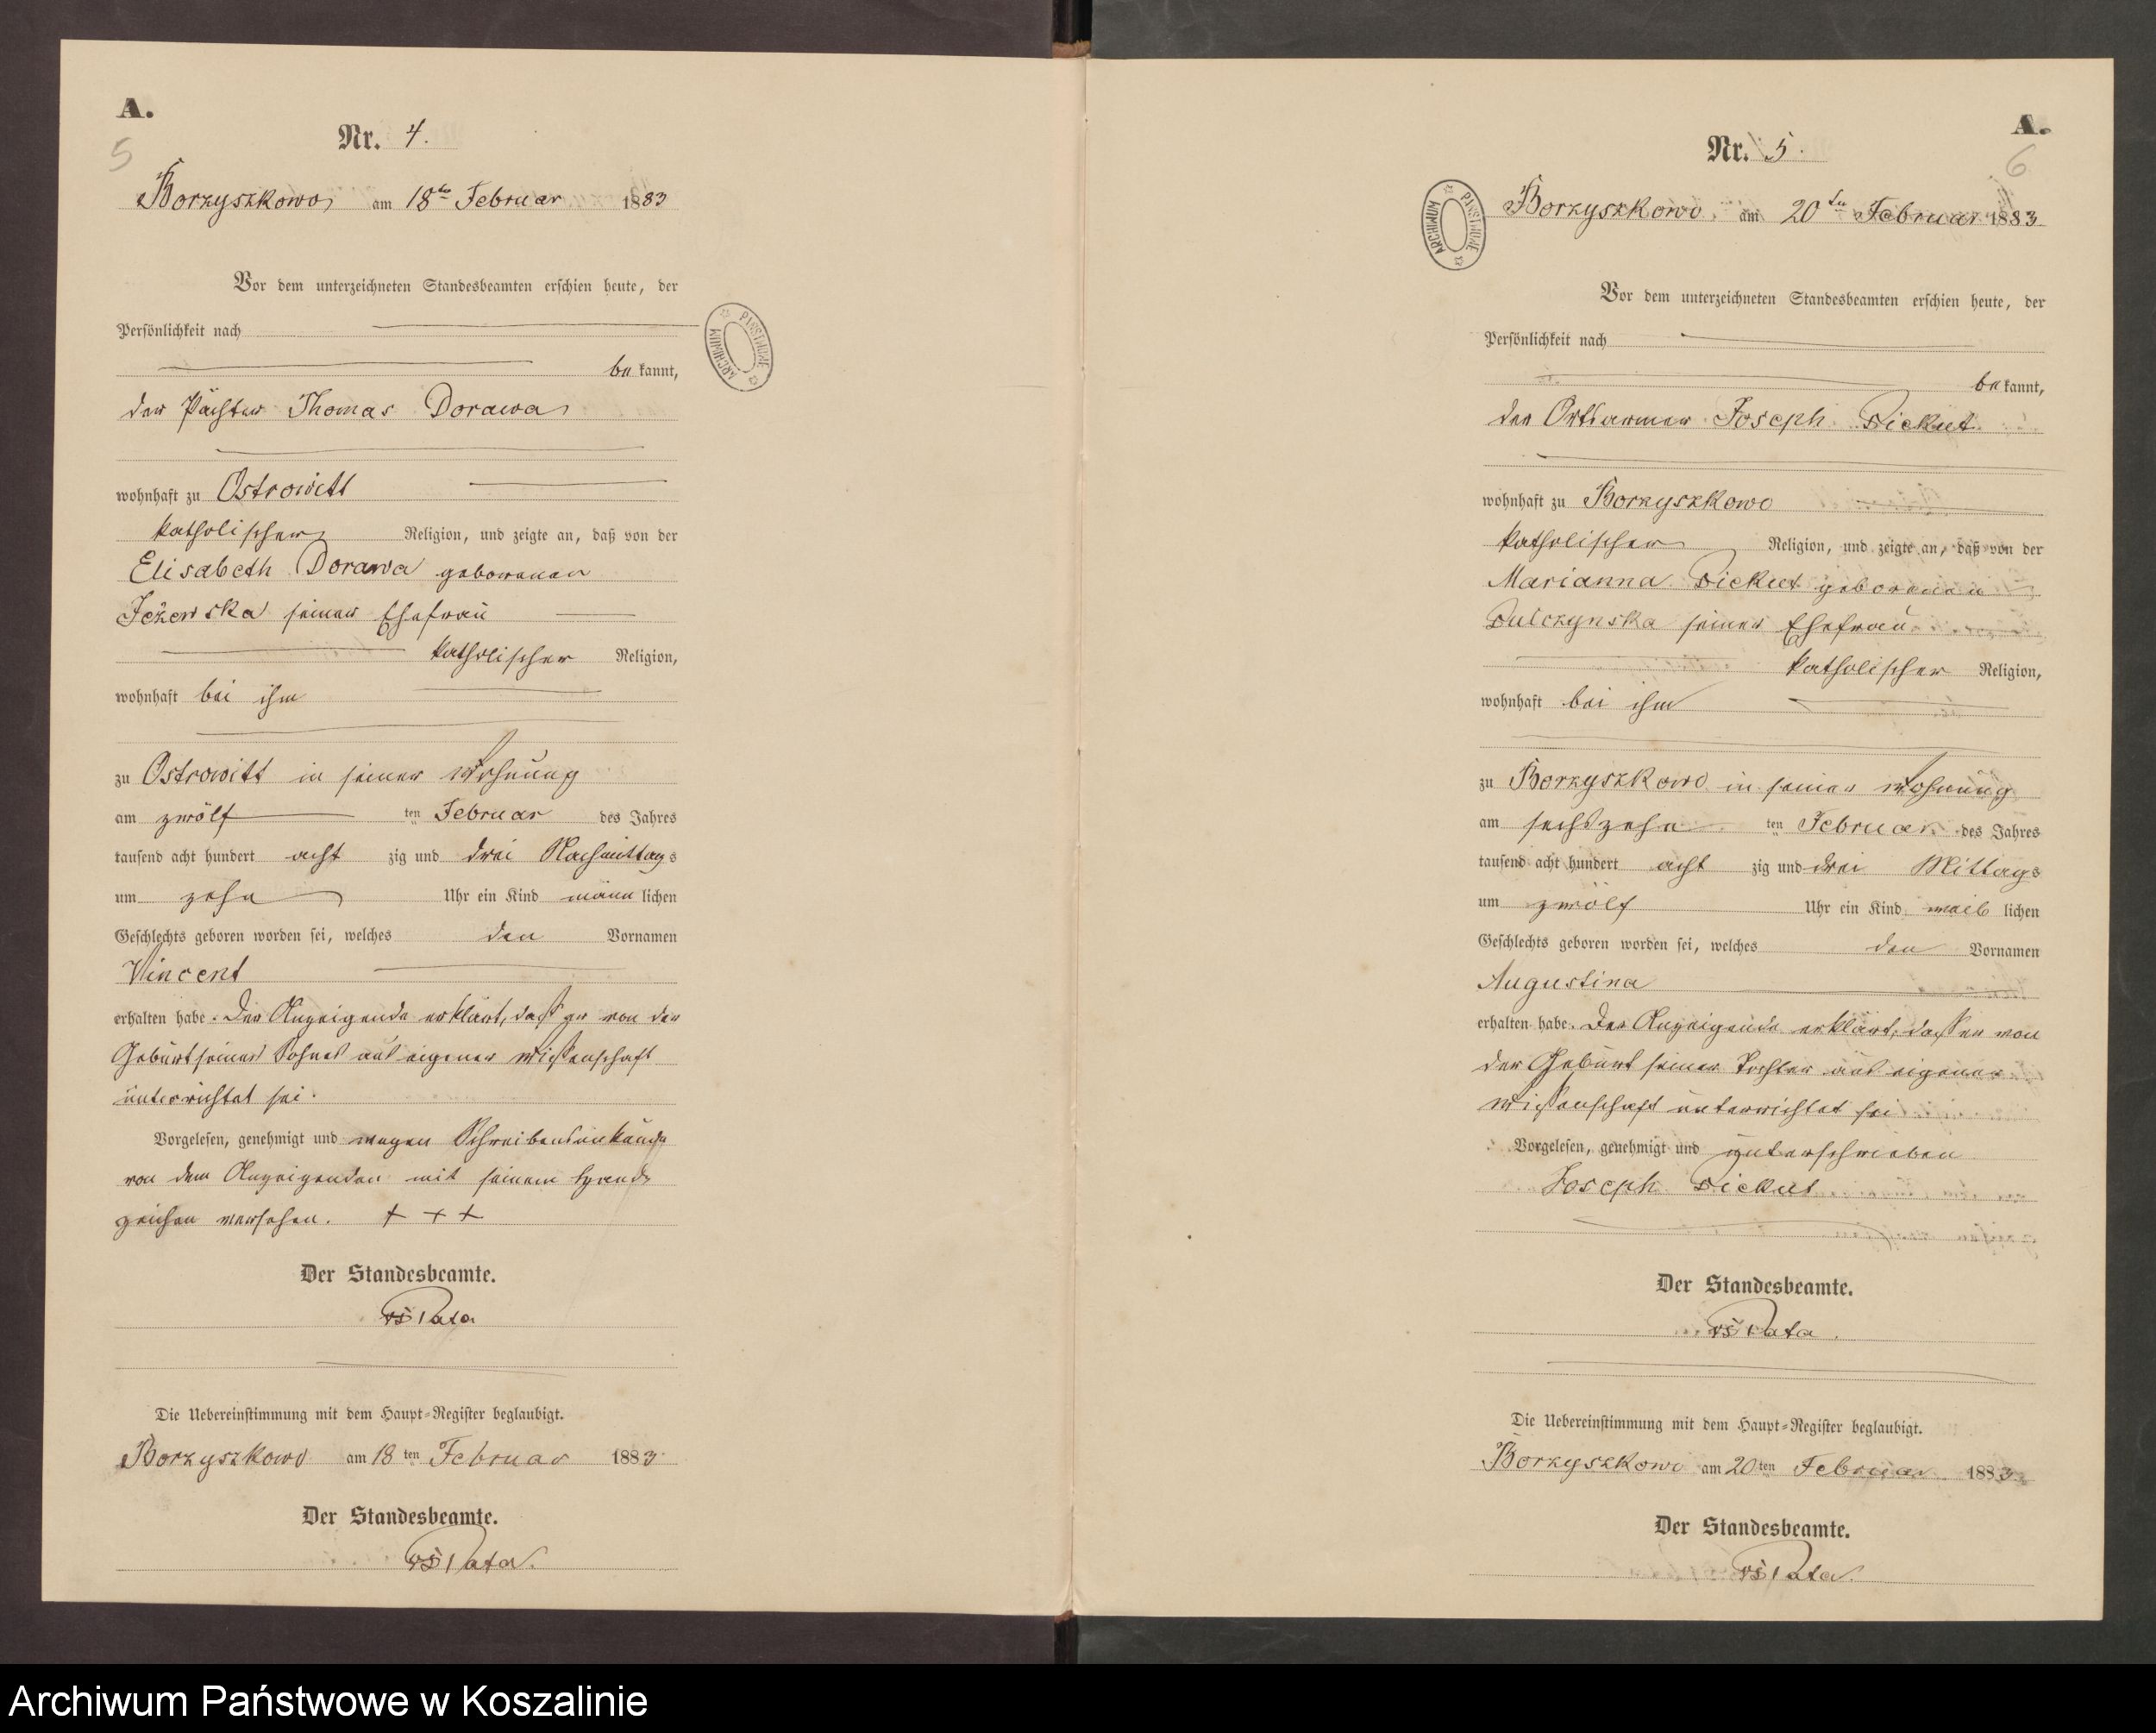 A.
5
Nr. 4.
Borzyszkowo am 18ten Februar 1883
Vor dem unterzeichneten Standesbeamten erschien heute, der
Persönlichkeit nach
be kannt,
der Pächter Thomas Dorawa
wohnhaft zu Ostrowitt
katholischer Religion, und zeigte an, daß von der
Elisabeth Dorawa geborenen
Jeżewska seiner Ehefrau
katholischer Religion,
wohnhaft bei ihm
zu Ostrowitt in seiner Wohnung
am zwölf ten Februar des Jahres
tausend acht hundert acht zig und drei Nachmittags
um zehn Uhr ein Kind männ lichen
Geschlechts geboren worden sei, welches den Vornamen
Vincent
erhalten habe. Der Anzeigende erklärt, daß er von der
Geburt seines Sohnes aus eigener Wissenschaft
unterrichtet sei.
Vorgelesen, genehmigt und wegen Schreibensunkunde
von dem Anzeigenden mit seinem Handzeichen versehen. + + +
Der Standesbeamte.
Pata
Die Uebereinstimmung mit dem Haupt-Register beglaubigt.
Borzyszkowo am 18 ten Februar 1883
Der Standesbeamte.
Pata.
A.
6
Nr. 5.
Borzyszkowo am 20ten Februar 1883
Vor dem unterzeichneten Standesbeamten erschien heute, der
Persönlichkeit nach
be kannt,
der Ortsarmer Joseph Dickut
wohnhaft zu Borzyszkowo
katholischer Religion, und zeigte an, daß von der
Marianna Dickut geborenen
Dulczynska seiner Ehefrau
katholischer Religion,
wohnhaft bei ihm
zu Borzyszkowo in seiner Wohnung
am sechszehn ten Februar des Jahres
tausend acht hundert acht zig und drei Mittags
um zwölf Uhr ein Kind weib lichen
Geschlechts geboren worden sei, welches den Vornamen
Augustina
erhalten habe. Der Anzeigende erklärt, daß er von
der Geburt seiner Tochter aus eigener
Wissenschaft unterrichtet sei
Vorgelesen, genehmigt und unterschrieben
Joseph Dickut
Der Standesbeamte.
Pata.
Die Uebereinstimmung mit dem Haupt-Register beglaubigt.
Borzyszkowo am 20 ten Februar 1883
Der Standesbeamte.
Pata.
ARCHIWUM PAŃSTWOWE
ARCHIWUM PAŃSTWOWE
Archiwum Państwowe w Koszalinie